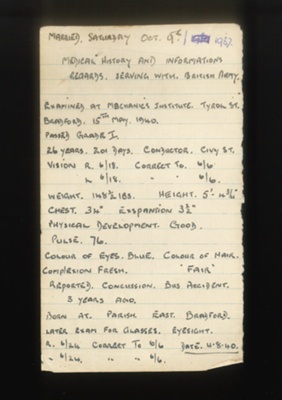 MARRIED. SATURDAY OCT. 9th/ 1937.
MEDICAL HISTORY AND INFORMATIONS
REGARDS. SERVING WITH. BRITISH ARMY.
EXAMINED AT MECHANICS INSTITUTE. TYRREL ST.
BRADFORD. 15TH MAY. 1940.
PASSED GRADE I.
26 YEARS. 201 DAYS. CONDUCTOR. CIVY ST.
VISION R. 6/18. CORRECT TO. 6/6
L 6/18. " " 6/6.
WEIGHT. 148½ LBS. HEIGHT. 5'-
CHEST. EXSPANTION 3½"
PHYSICAL DEVELOPMENT. GOOD.
PULSE. 76.
COLOUR OF EYES. BLUE. COLOUR OF HAIR.
COMPLEXION FRESH. "FAIR"
REPORTED. CONCUSSION. BUS ACCIDENT.
3 YEARS AGO.
BORN AT. PARISH EAST. BRADFORD.
LATER EXAM FOR GLASSES. EYESIGHT.
R. 6/24 CORRECT TO 6/6 DATE. 4-8-40.
L 6/24. " " 6/6.